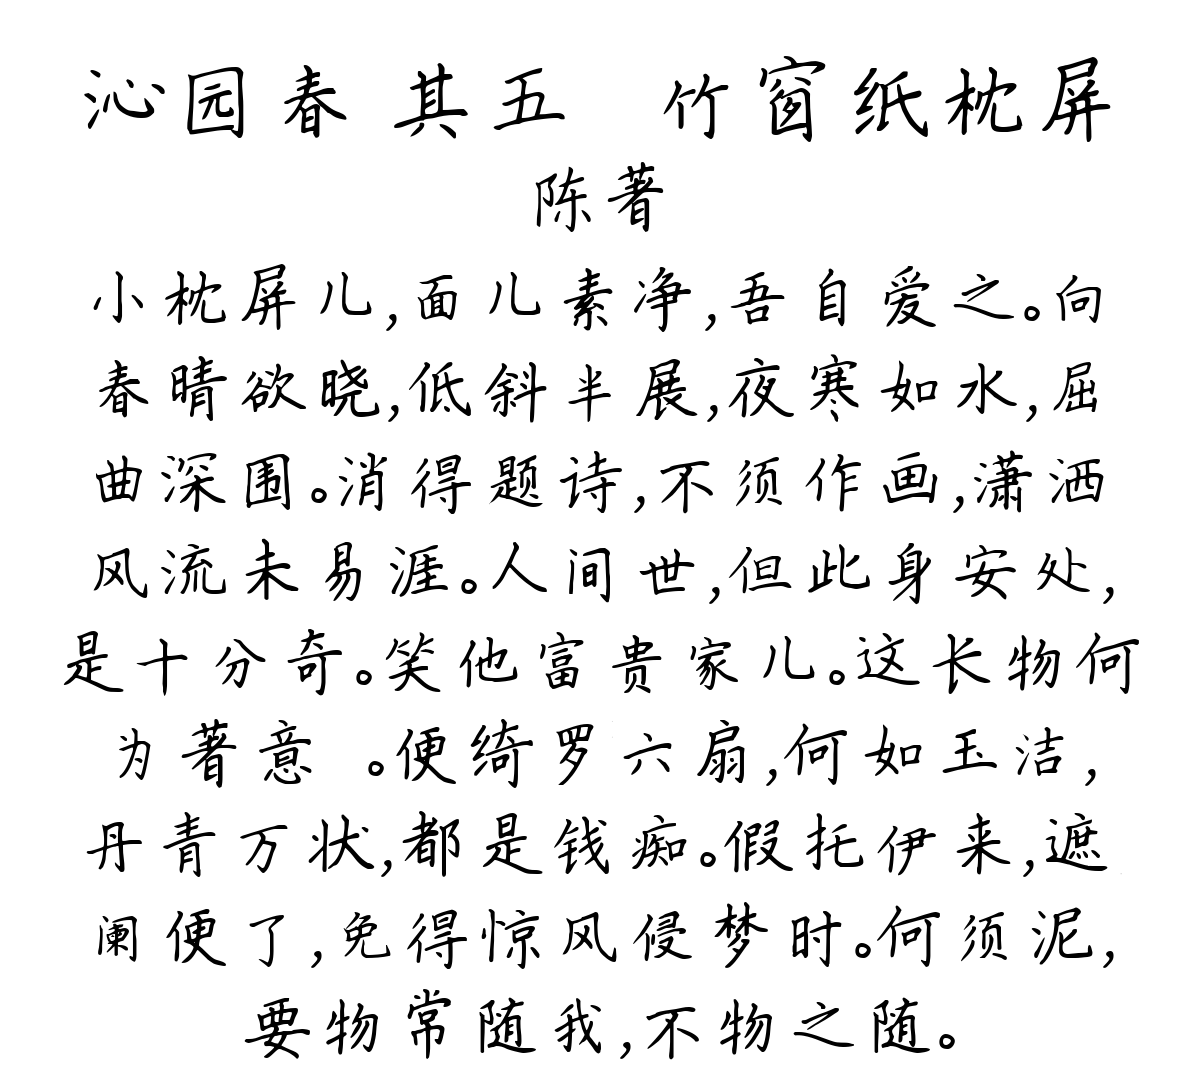 沁园春 其五 竹窗纸枕屏
陈著
小枕屏儿,面儿素净,吾自爱之。向
春晴欲晓,低斜半展,夜寒如水,屈
曲深围。消得题诗,不须作画,潇洒
风流未易涯。人间世,但此身安处,
是十分奇。笑他富贵家儿。这长物何
为著意 。便绮罗六扇,何如玉洁,
丹青万状,都是钱痴。假托伊来,遮
阑便了,免得惊风侵梦时。何须泥,
要物常随我,不物之随。